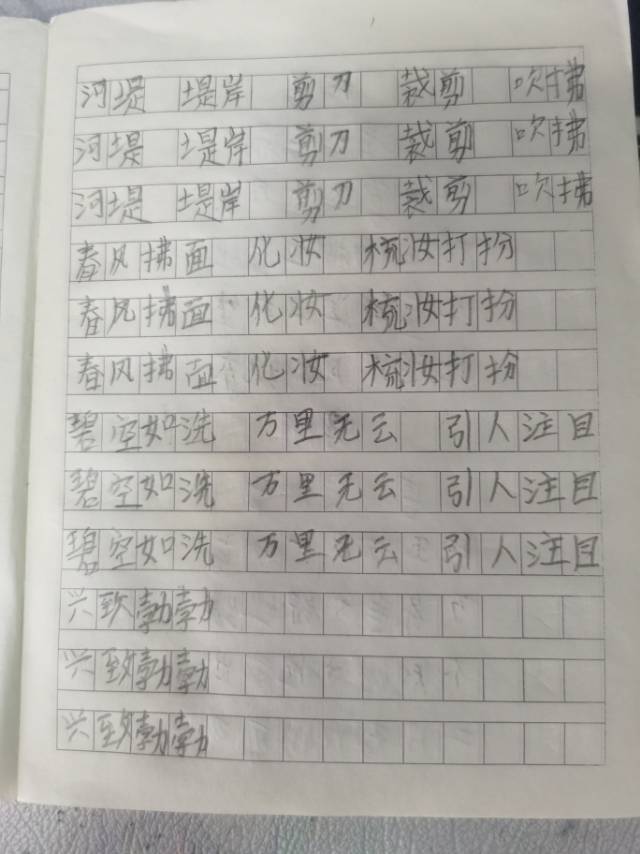 河堤 堤岸 剪刀 裁剪 吹拂
河堤 堤岸 剪刀 裁剪 吹拂
河堤 堤岸 剪刀 裁剪 吹拂
春风拂面 化妆 梳妆打扮
春风拂面 化妆 梳妆打扮
春风拂面 化妆 梳妆打扮
碧空如洗 万里无云 引人注目
碧空如洗 万里无云 引人注目
碧空如洗 万里无云 引人注目
兴致勃勃
兴致勃勃
兴致勃勃